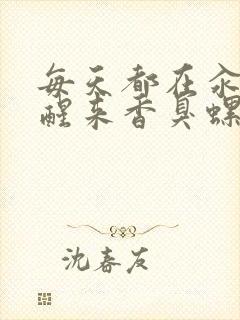 每天都在汆
醒来香臭螺
沈春友